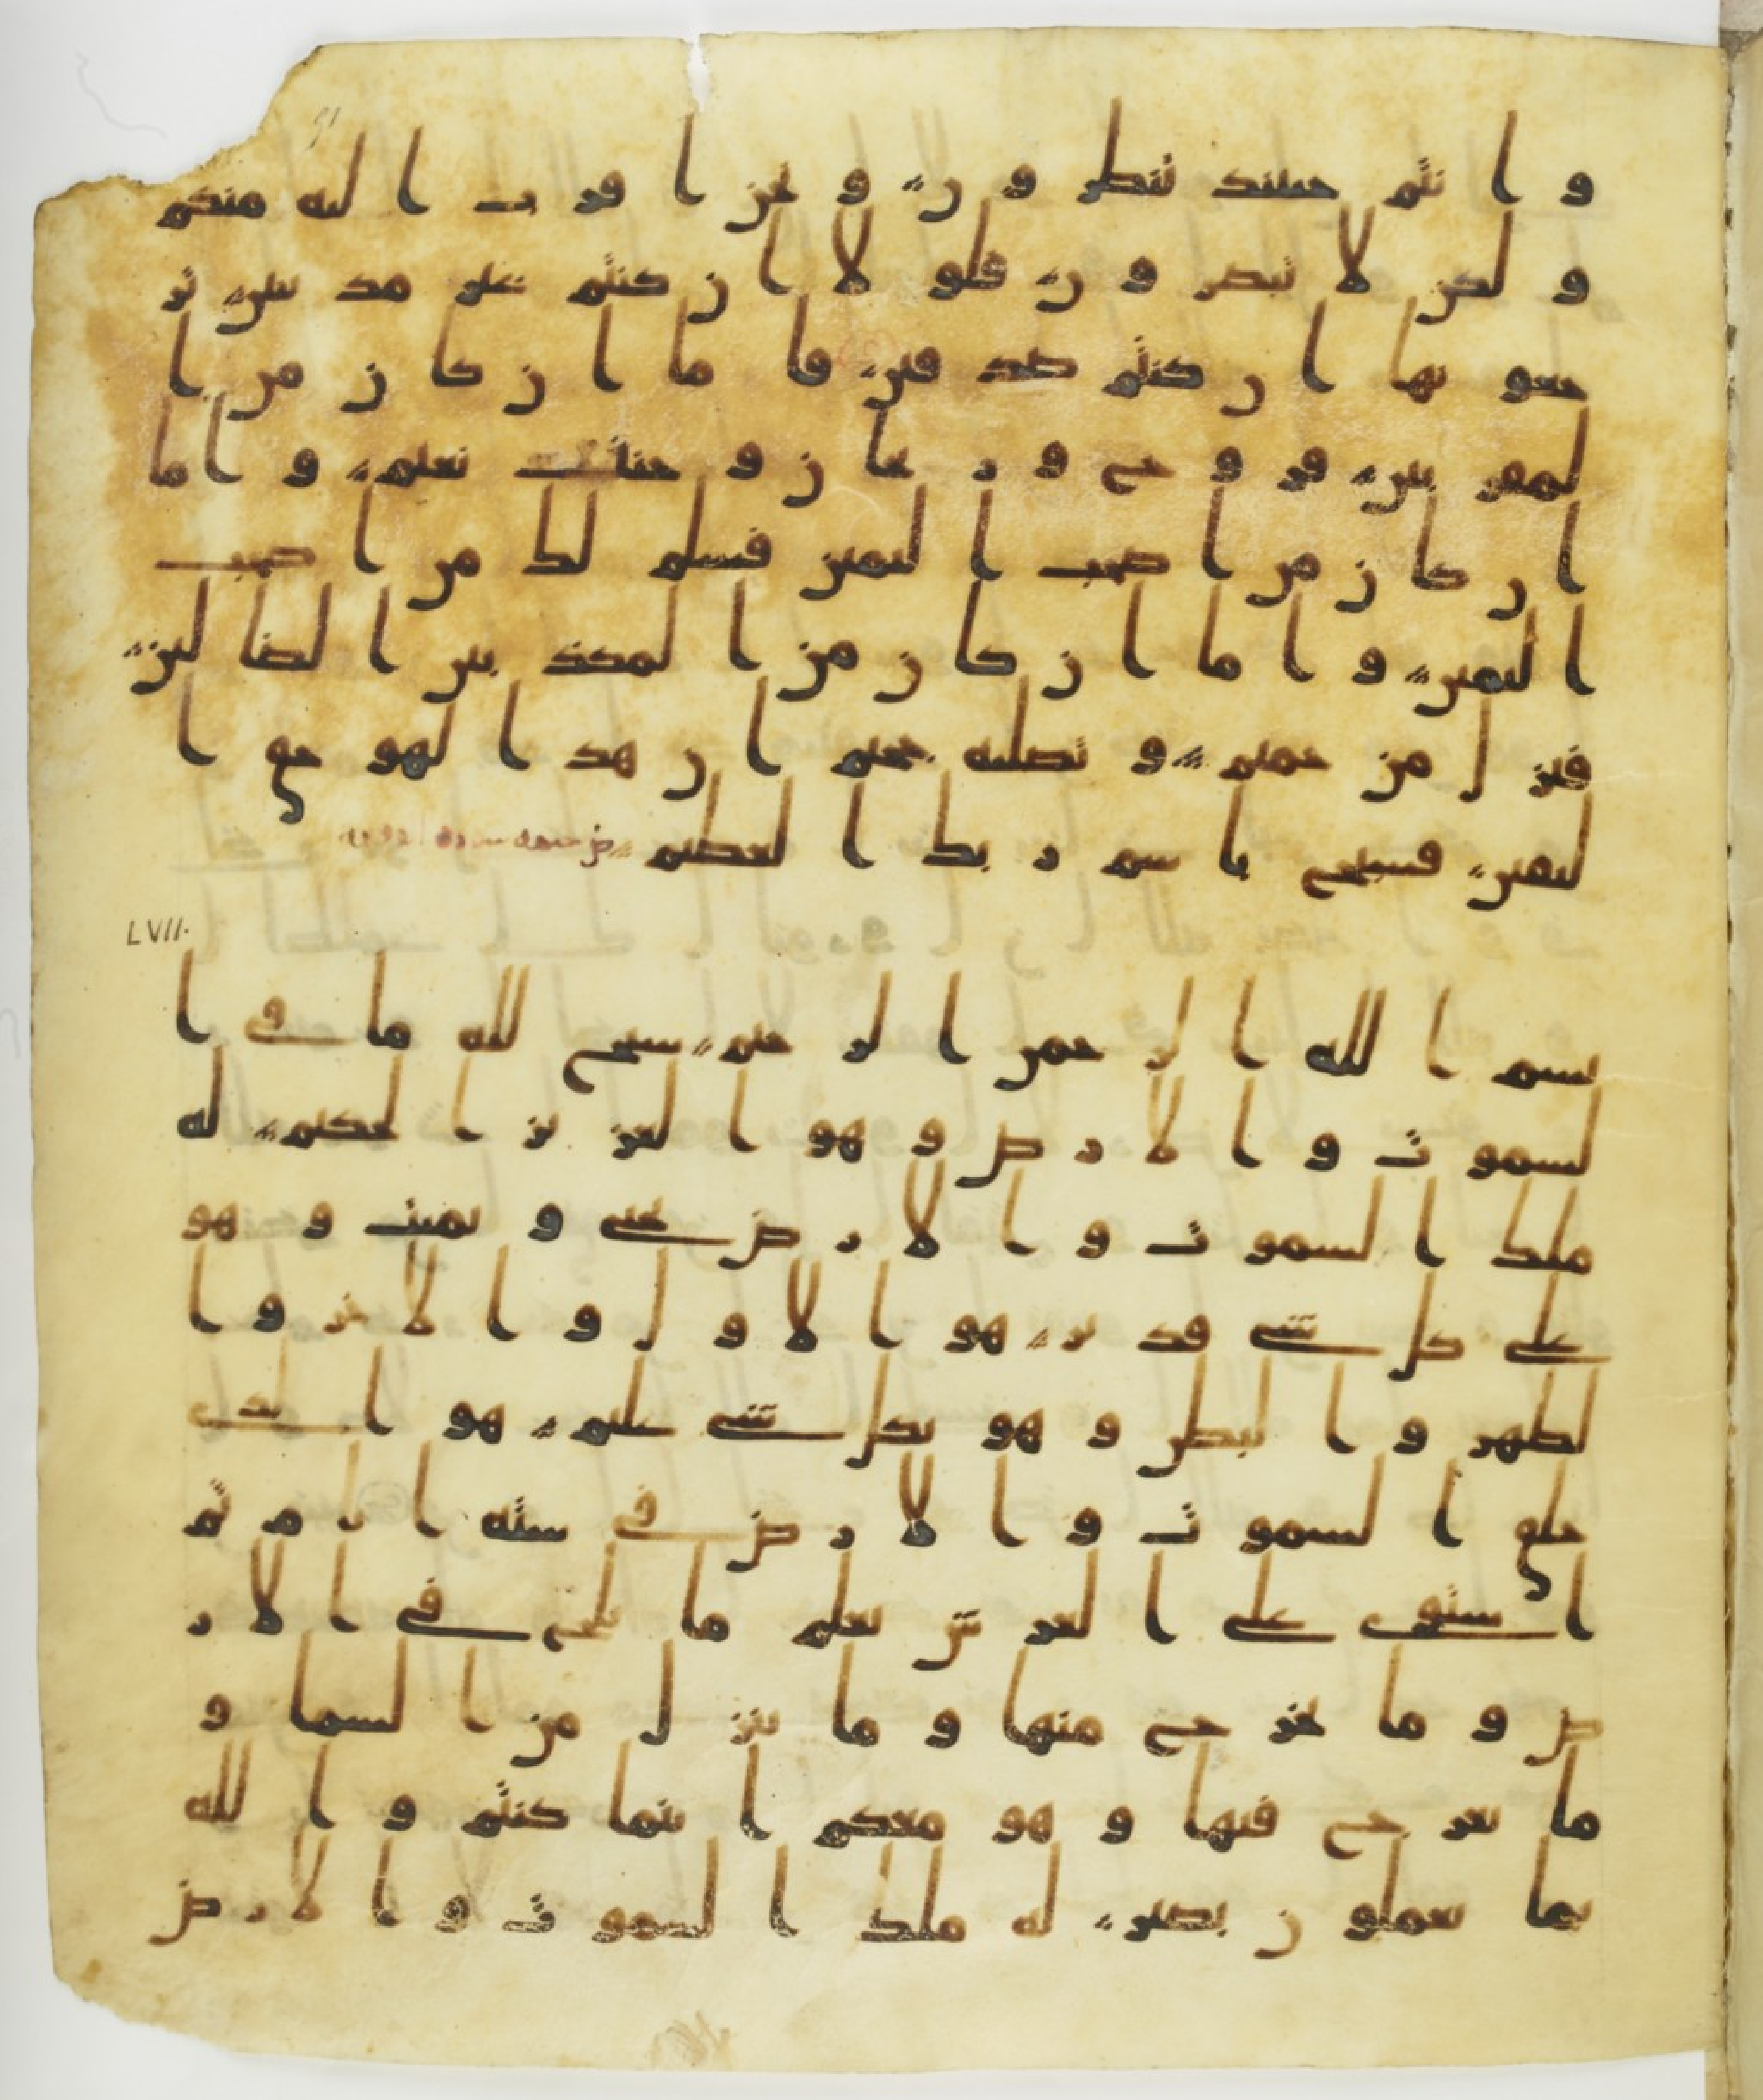 وانتم حينئذ تنظرون ونحن اقرب اليه منكم
ولكن لا تبصرون فلولا ان كنتم غير مدينين تر
جعونها ان كنتم صدقين فاما ان كان من ا
لمقربين فروح وريحان وجنات نعيم واما
ان كان من اصحب اليمين فسلم لك من اصحب
اليمين واما ان كان من المكذبين الضالين
فنزل من حميم وتصليه جحيم ان هذا لهو حق ا
ليقين فسبح باسم ربك العظيم
LVII.
بسم الله الرحمن الرحيم سبح لله ما في ا
لسموت والارض وهو العزيز الحكيم له
ملك السموت والارض يحي ويميت وهو
على كل شي قدير هو الاول والاخر وا
لظهر والبطن وهو بكل شي عليم هو الذي
خلق السموت والارض في ستة ايم ثم
استوى على العرش يعلم ما يلج في الار
ض وما يخرج منها وما ينزل من السما و
ما يعرج فيها وهو معكم اينما كنتم والله
بما تعملون بصير له ملك السموت والارض